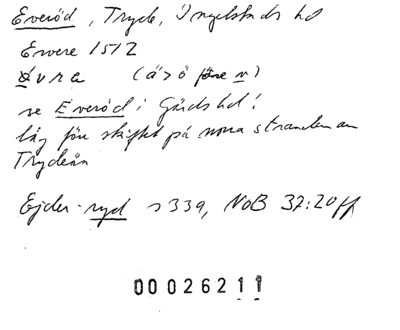 Everöd, Tryde, Ingelstads hd
Evere 1512
Övra (å>ö före v)
se Everöd i Gärds hd!
låg före skiftet på norra stranden av
Trydeån
Ejder-ryd s 339, NoB 37:20ff
00026211